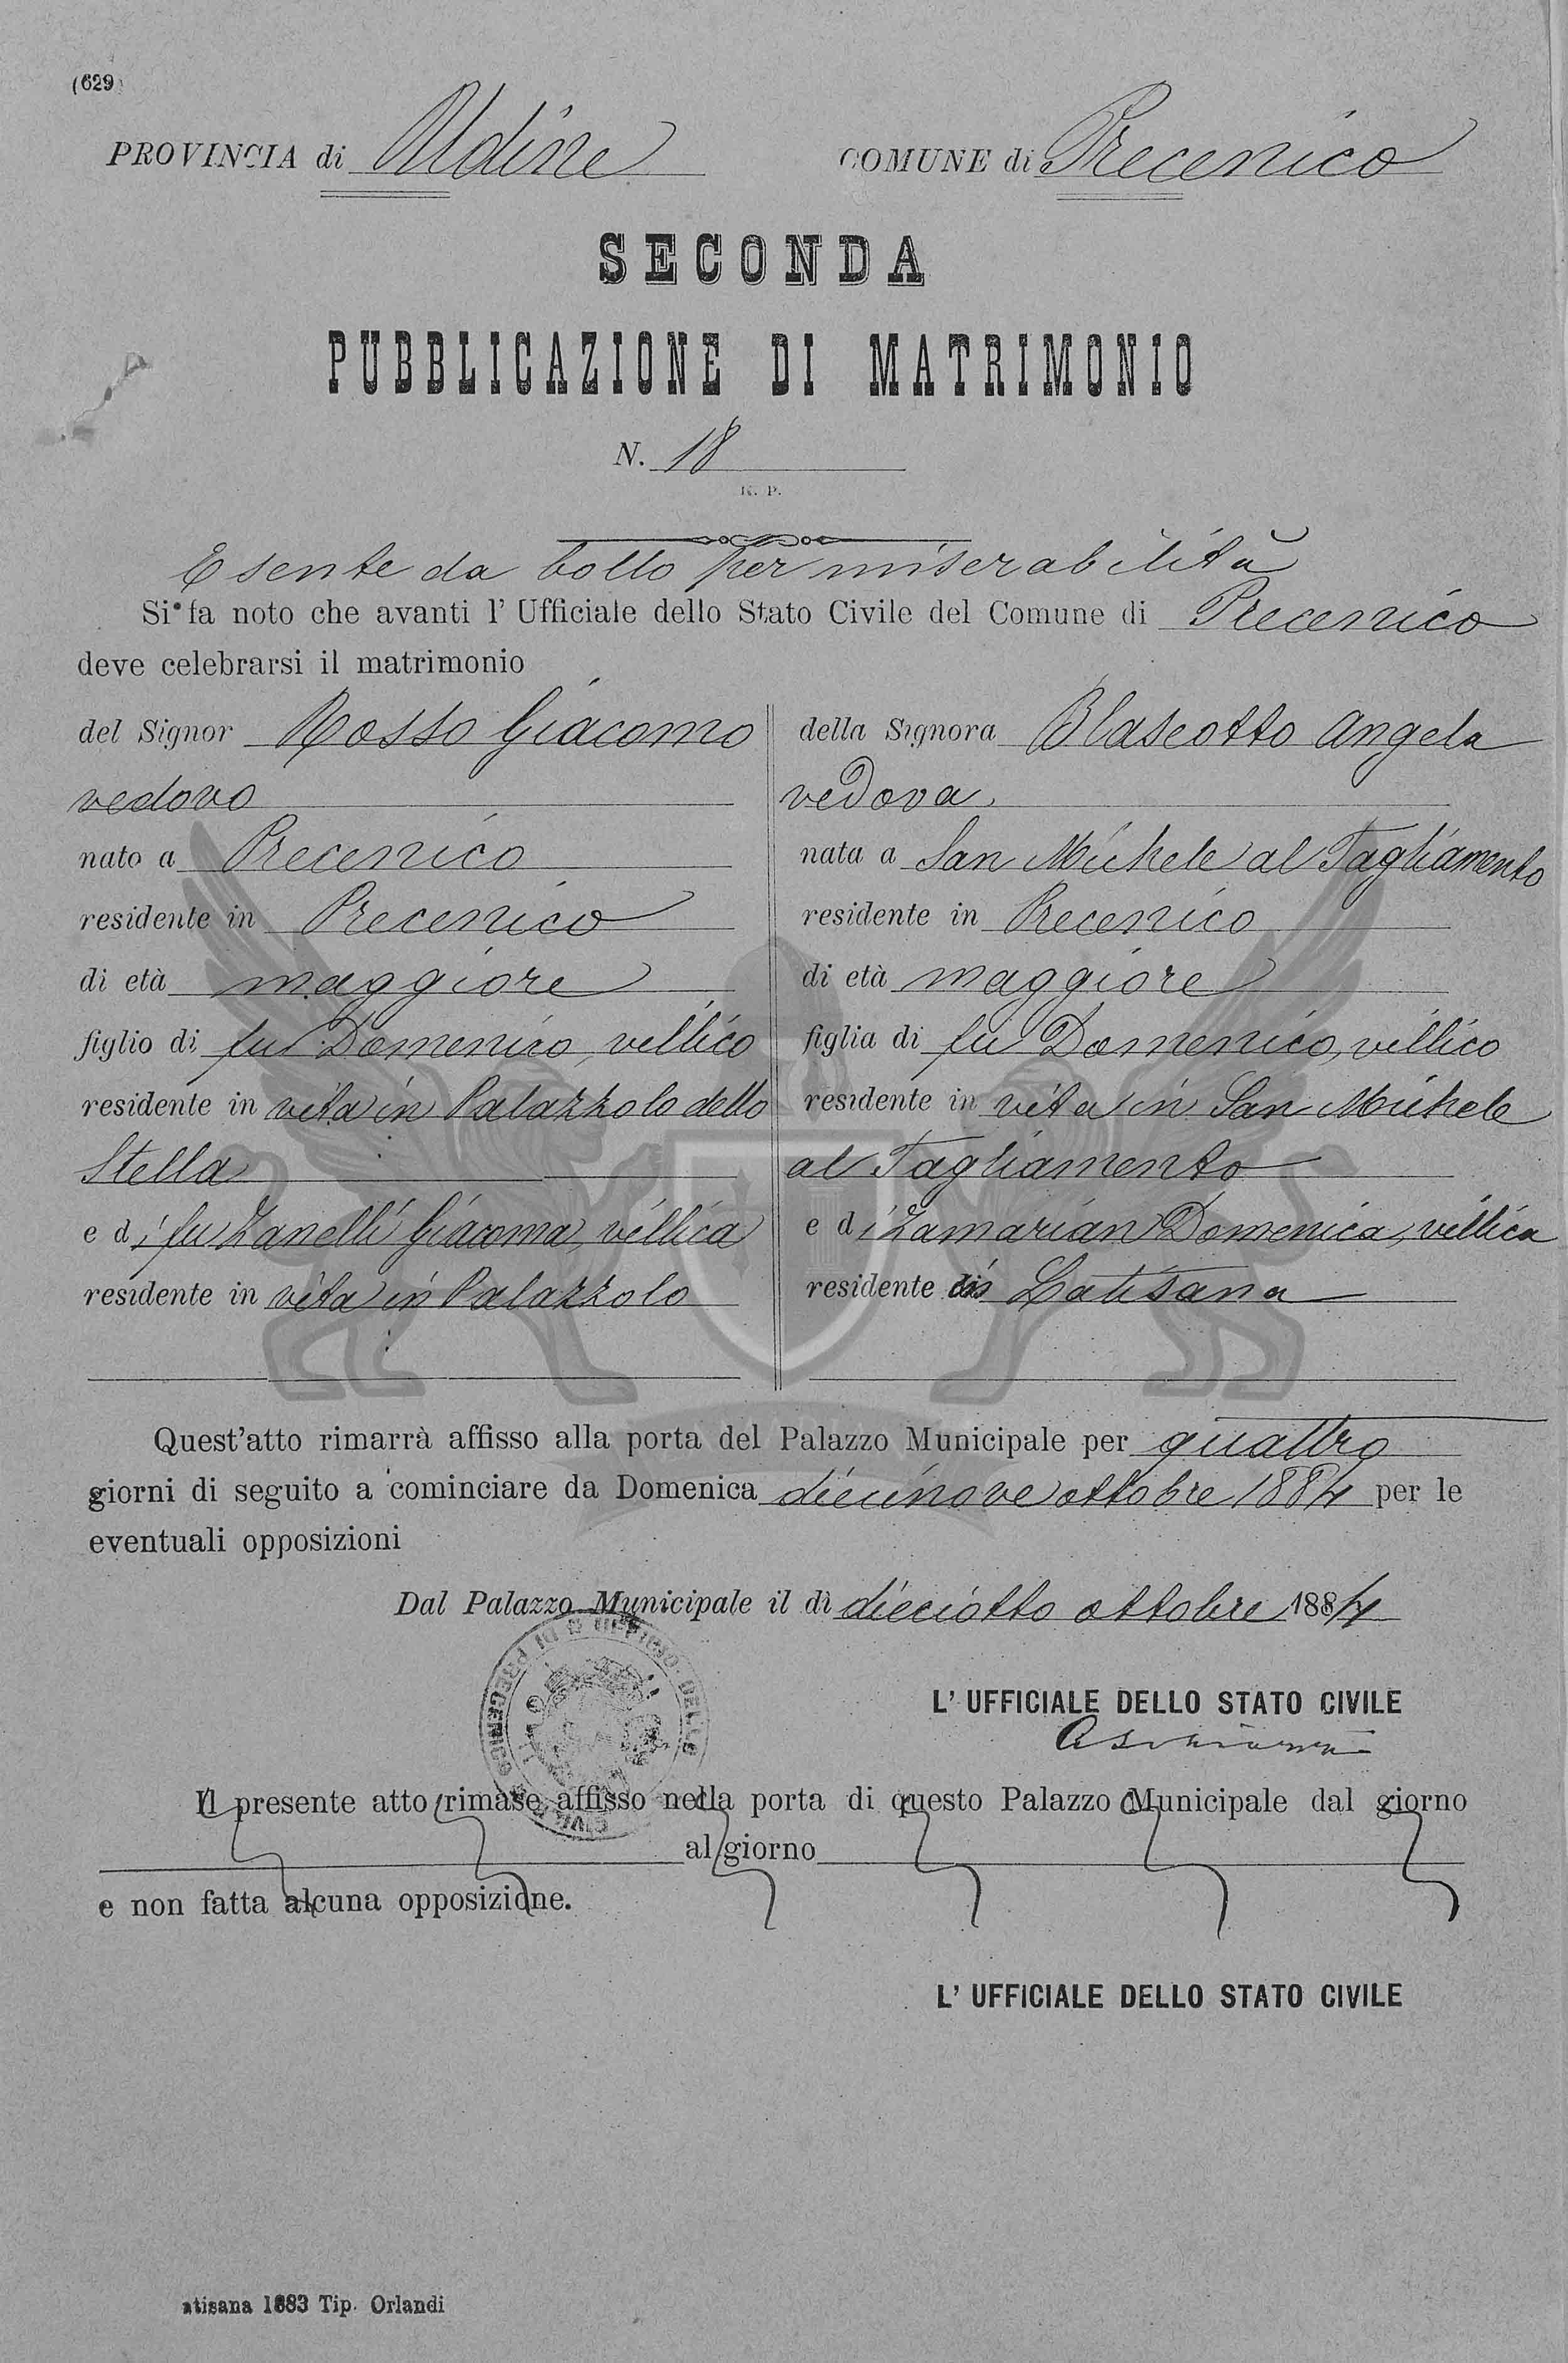 (629)
PROVINCIA di Udine
COMUNE di Precenico
SECONDA
PUBBLICAZIONE DI MATRIMONIO
N. 18
R. P.
Esente da bollo per miserabilità
Si fa noto che avanti l' Ufficiale dello Stato Civile del Comune di Precenico
deve celebrarsi il matrimonio
del Signor Rosso Giacomo
vedovo
nato a Precenico
residente in Precenico
di età maggiore
figlio di fu Domenico, villico
residente in vita in Palazzolo dello
Stella
e di fu Zanelli Giacoma, villica
residente in vita in Palazzolo
della Signora Blaseotto Angela
vedova
nata a San Michele al Tagliamento
residente in Precenico
di età maggiore
figlia di fu Domenico, villico
residente in vita in San Michele
al Tagliamento
e di Zamarian Domenica, villica
residente in Latisana
Quest'atto rimarrà affisso alla porta del Palazzo Municipale per quattro
giorni di seguito a cominciare da Domenica diecinove ottobre 1884 per le
eventuali opposizioni
Dal Palazzo Municipale il dì dieciotto ottobre 1884
UFFICIO DELLO
DI PRECENICO
L' UFFICIALE DELLO STATO CIVILE
Il presente atto rimase affisso nella porta di questo Palazzo Municipale dal giorno
al giorno
e non fatta alcuna opposizione.
L' UFFICIALE DELLO STATO CIVILE
atisana 1883 Tip. Orlandi